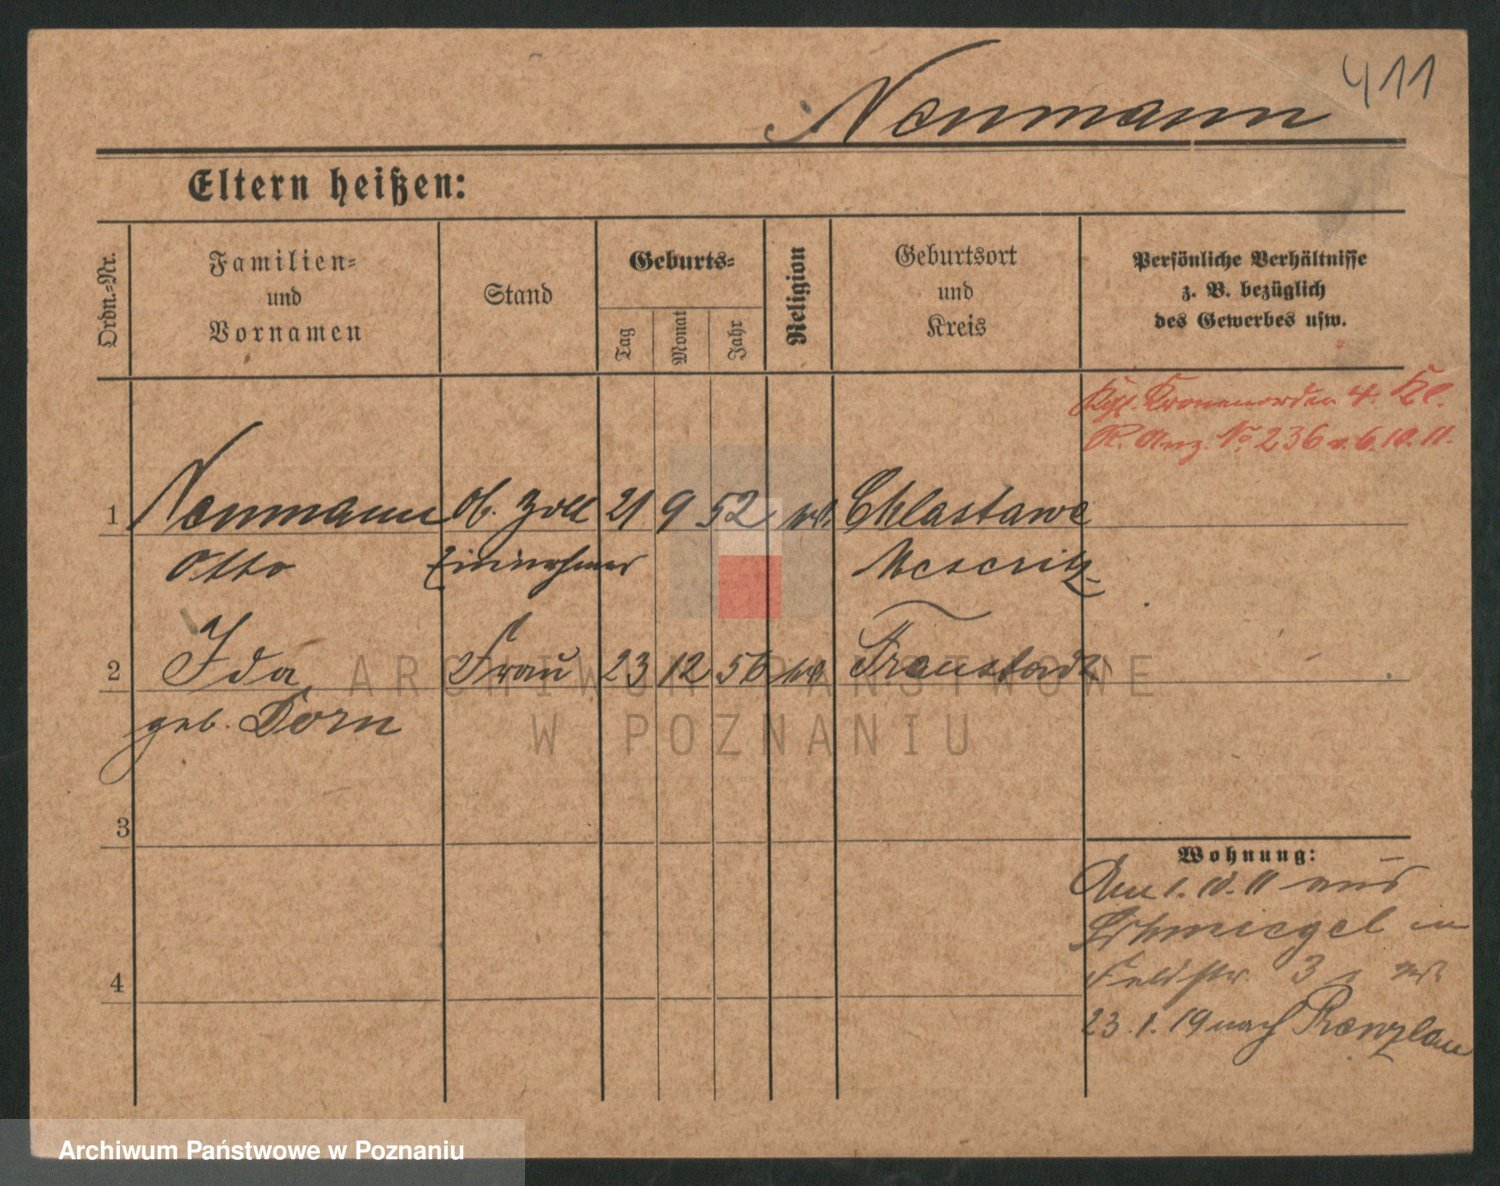 411
Neumann
Eltern heißen:
Ordn.-Nr.
Familien-
und
Vornamen
Stand
Geburts-
Tag
Monat
Jahr
Religion
Geburtsort
und
Kreis
Persönliche Verhältnisse
z. B. bezüglich
des Gewerbes usw.
Kgl. Kronenorden 4. Kl.
R. Anz. No. 236 v. 6.10.11.
1 Neumann Ob. Zoll 21 9 52 Chlastawe
Otto Einnehmer Meseritz
2 Ida Frau 23 12 56 Fraustadt
geb. Dorn
3
4
Wohnung:
Am 1.10.11 aus
Schmiegel in
Feldstr. 3
23.1.19 nach Prenzlau
ARCHIWUM PAŃSTWOWE
W POZNANIU
Archiwum Państwowe w Poznaniu